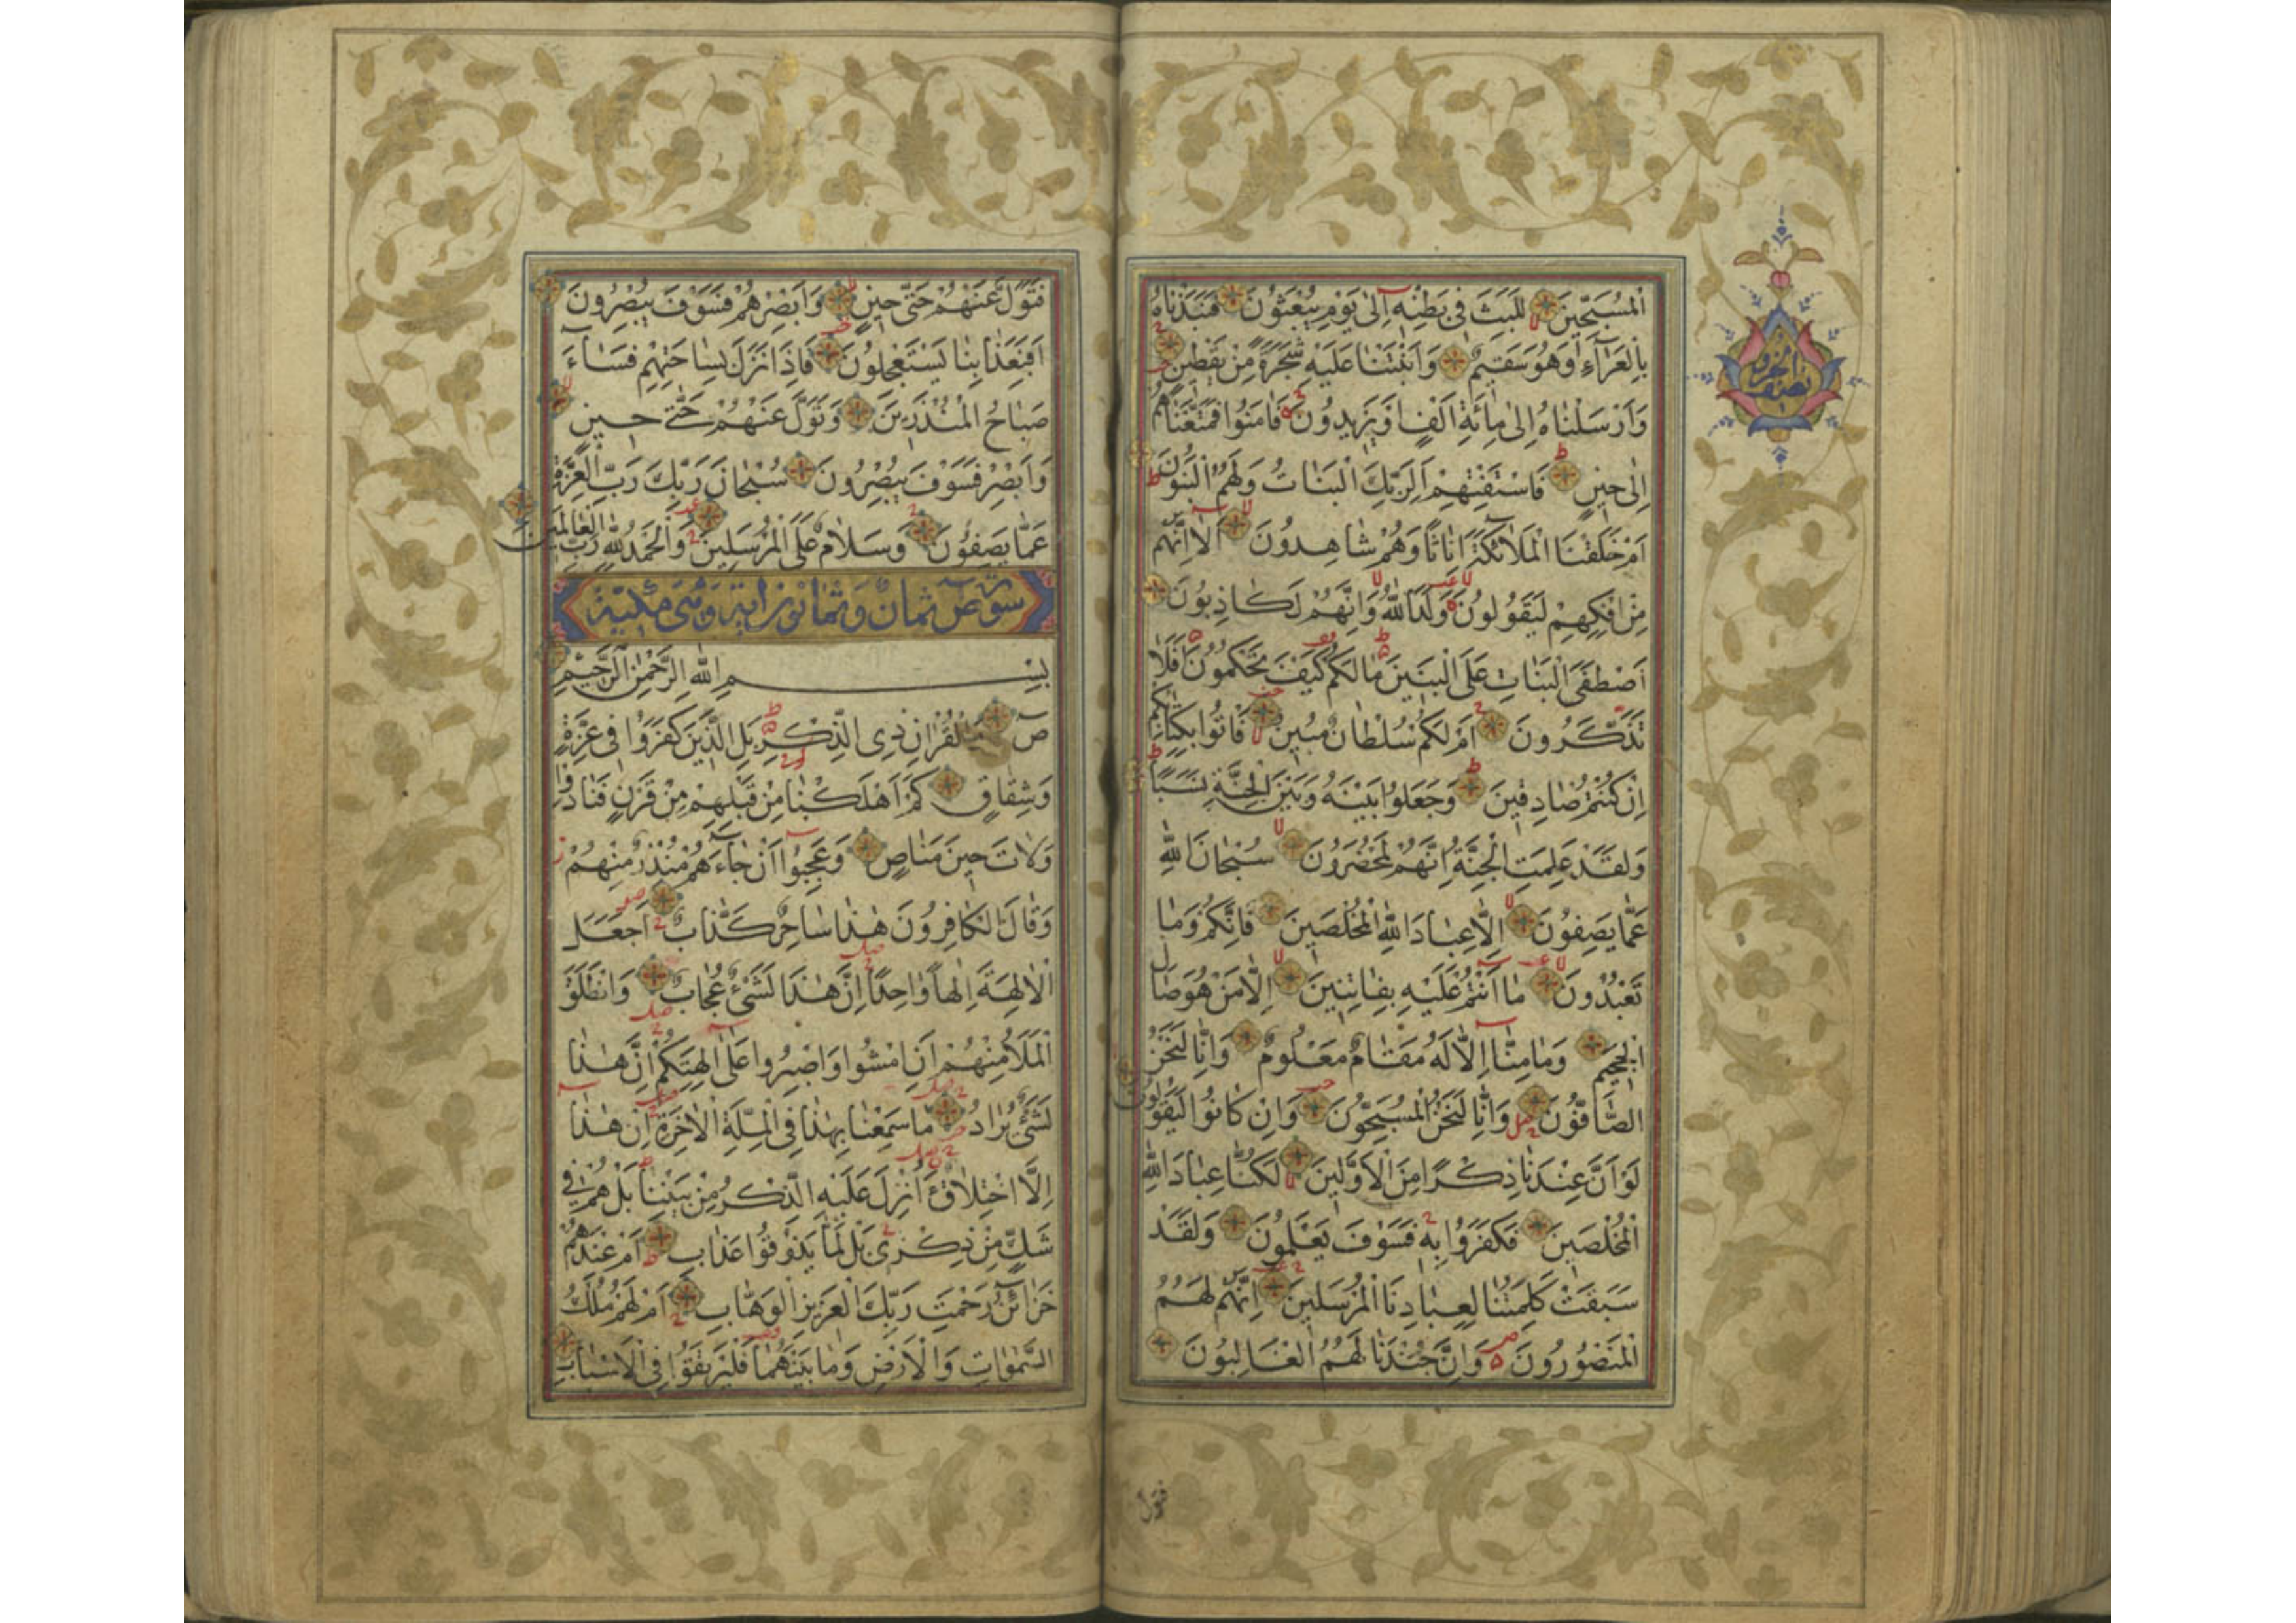 الْمُسَبِّحِينَ لَلَبِثَ فِي بَطْنِهِ إِلَىٰ يَوْمِ يُبْعَثُونَ فَنَبَذْنَاهُ
بِالْعَرَاءِ وَهُوَ سَقِيمٌ وَأَنْبَتْنَا عَلَيْهِ شَجَرَةً مِنْ يَقْطِينٍ
وَأَرْسَلْنَاهُ إِلَىٰ مِائَةِ أَلْفٍ أَوْ يَزِيدُونَ فَآمَنُوا فَمَتَّعْنَاهُمْ
إِلَىٰ حِينٍ فَاسْتَفْتِهِمْ أَلِرَبِّكَ الْبَنَاتُ وَلَهُمُ الْبَنُونَ
أَمْ خَلَقْنَا الْمَلَائِكَةَ إِنَاثًا وَهُمْ شَاهِدُونَ أَلَا إِنَّهُمْ
مِنْ إِفْكِهِمْ لَيَقُولُونَ وَلَدَ اللَّهُ وَإِنَّهُمْ لَكَاذِبُونَ
أَصْطَفَى الْبَنَاتِ عَلَى الْبَنِينَ مَا لَكُمْ كَيْفَ تَحْكُمُونَ أَفَلَا
تَذَكَّرُونَ أَمْ لَكُمْ سُلْطَانٌ مُبِينٌ فَأْتُوا بِكِتَابِكُمْ
إِنْ كُنْتُمْ صَادِقِينَ وَجَعَلُوا بَيْنَهُ وَبَيْنَ الْجِنَّةِ نَسَبًا
وَلَقَدْ عَلِمَتِ الْجِنَّةُ إِنَّهُمْ لَمُحْضَرُونَ سُبْحَانَ اللَّهِ
عَمَّا يَصِفُونَ إِلَّا عِبَادَ اللَّهِ الْمُخْلَصِينَ فَإِنَّكُمْ وَمَا
تَعْبُدُونَ مَا أَنْتُمْ عَلَيْهِ بِفَاتِنِينَ إِلَّا مَنْ هُوَ صَالِ
الْجَحِيمِ وَمَا مِنَّا إِلَّا لَهُ مَقَامٌ مَعْلُومٌ وَإِنَّا لَنَحْنُ
الصَّافُّونَ وَإِنَّا لَنَحْنُ الْمُسَبِّحُونَ وَإِنْ كَانُوا لَيَقُولُونَ
لَوْ أَنَّ عِنْدَنَا ذِكْرًا مِنَ الْأَوَّلِينَ لَكُنَّا عِبَادَ اللَّهِ
الْمُخْلَصِينَ فَكَفَرُوا بِهِ فَسَوْفَ يَعْلَمُونَ وَلَقَدْ
سَبَقَتْ كَلِمَتُنَا لِعِبَادِنَا الْمُرْسَلِينَ إِنَّهُمْ لَهُمُ
الْمَنْصُورُونَ وَإِنَّ جُنْدَنَا لَهُمُ الْغَالِبُونَ
فتول
فَتَوَلَّ عَنْهُمْ حَتَّىٰ حِينٍ وَأَبْصِرْهُمْ فَسَوْفَ يُبْصِرُونَ
أَفَبِعَذَابِنَا يَسْتَعْجِلُونَ فَإِذَا نَزَلَ بِسَاحَتِهِمْ فَسَاءَ
صَبَاحُ الْمُنْذَرِينَ وَتَوَلَّ عَنْهُمْ حَتَّىٰ حِينٍ
وَأَبْصِرْ فَسَوْفَ يُبْصِرُونَ سُبْحَانَ رَبِّكَ رَبِّ الْعِزَّةِ
عَمَّا يَصِفُونَ وَسَلَامٌ عَلَى الْمُرْسَلِينَ وَالْحَمْدُ لِلَّهِ رَبِّ الْعَالَمِينَ
سورة ص ثمان وثمانون اية وهى مكية
بِسْمِ اللَّهِ الرَّحْمَٰنِ الرَّحِيمِ
ص وَالْقُرْآنِ ذِي الذِّكْرِ بَلِ الَّذِينَ كَفَرُوا فِي عِزَّةٍ
وَشِقَاقٍ كَمْ أَهْلَكْنَا مِنْ قَبْلِهِمْ مِنْ قَرْنٍ فَنَادَوْا
وَلَاتَ حِينَ مَنَاصٍ وَعَجِبُوا أَنْ جَاءَهُمْ مُنْذِرٌ مِنْهُمْ
وَقَالَ الْكَافِرُونَ هَٰذَا سَاحِرٌ كَذَّابٌ أَجَعَلَ
الْآلِهَةَ إِلَٰهًا وَاحِدًا إِنَّ هَٰذَا لَشَيْءٌ عُجَابٌ وَانْطَلَقَ
الْمَلَأُ مِنْهُمْ أَنِ امْشُوا وَاصْبِرُوا عَلَىٰ آلِهَتِكُمْ إِنَّ هَٰذَا
لَشَيْءٌ يُرَادُ مَا سَمِعْنَا بِهَٰذَا فِي الْمِلَّةِ الْآخِرَةِ إِنْ هَٰذَا
إِلَّا اخْتِلَاقٌ أَأُنْزِلَ عَلَيْهِ الذِّكْرُ مِنْ بَيْنِنَا بَلْ هُمْ فِي
شَكٍّ مِنْ ذِكْرِي بَلْ لَمَّا يَذُوقُوا عَذَابِ أَمْ عِنْدَهُمْ
خَزَائِنُ رَحْمَتِ رَبِّكَ الْعَزِيزِ الْوَهَّابِ أَمْ لَهُمْ مُلْكُ
السَّمَٰوَاتِ وَالْأَرْضِ وَمَا بَيْنَهُمَا فَلْيَرْتَقُوا فِي الْأَسْبَابِ